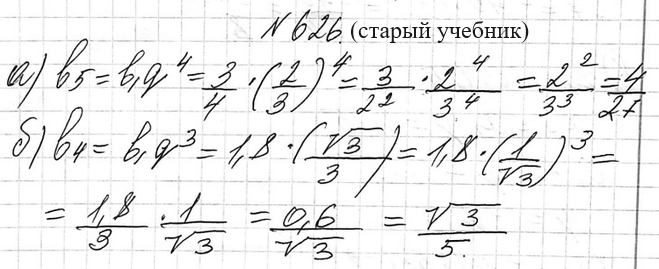 № 626 (старый учебник)
а) b₅ = b₁q⁴ = 3/4 · (2/3)⁴ = 3/2² · 2⁴/3⁴ = 2²/3³ = 4/27
б) b₄ = b₁q³ = 1,8 · (√3/3) = 1,8 · (1/√3)³ =
= 1,8/3 · 1/√3 = 0,6/√3 = √3/5.